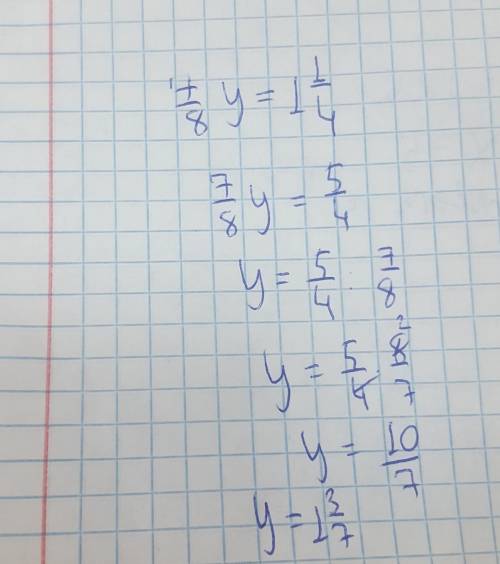 7/8 y = 1 1/4
7/8 y = 5/4
y = 5/4 : 7/8
y = 5/4 · 8/7 2
y = 10/7
y = 1 3/7